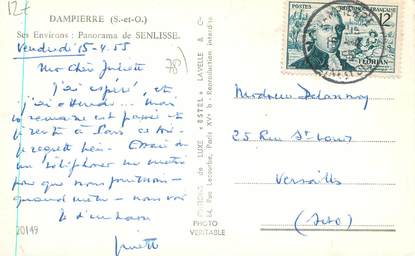 12f
DAMPIERRE (S.-et-O.)
Ses Environs : Panorama de SENLISSE.
Vendredi 15-4-55
(78)
Ma Chère Juliette
J'ai espéré, et
j'ai attendu... mais
la semaine est passée et
je reste à Paris ce soir
je regrette bien. Essaie de
me téléphoner un matin
pour que nous puissions
quand même nous voir
20149
ÉDITIONS de LUXE "ESTEL" LAVELLE & Cie
64, Rue Lecourbe, Paris XVe - Reproduction interdite
PHOTO
VÉRITABLE
POSTES
RÉPUBLIQUE FRANÇAISE
12F
FLORIAN
Madame Delannoy
25 Rue St Louis
Versailles
(S&O)